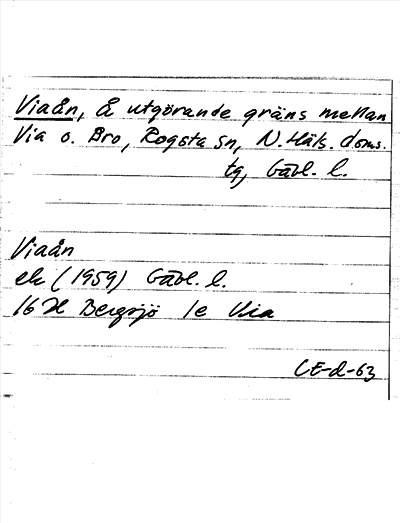 Viaån, Å utgörande gräns mellan
Via o. Bro, Rogsta sn, N. Häls. doms.
tg, Gävl. l.
Viaån
ek (1959) Gävl. l.
16 H Bergsjö 1e Via
CE-d-63